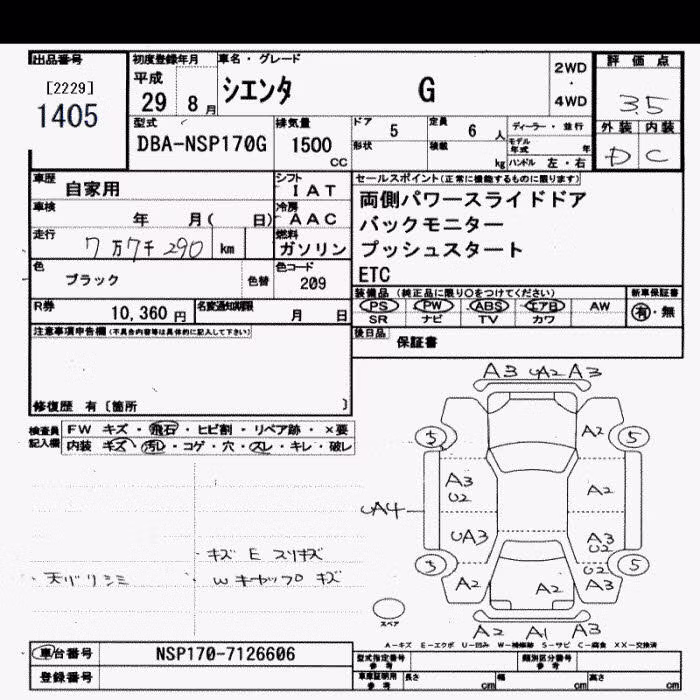 出品番号
[2229]
1405
初度登録年月
平成
29 8月
車名・グレード
シエンタ G
2WD
・
4WD
評価点
3.5
外装 内装
D C
型式
DBA-NSP170G
排気量
1500
CC
ドア 5
定員 6 人
ディーラー・並行
形状
積載 kg
モデル年式 年
ハンドル 左・右
車歴
自家用
シフト
IAT
車検
年 月( 日)
冷房
AAC
走行
7万7千290 km
燃料
ガソリン
色
ブラック
色替
色コード
209
R券
10,360 円
名変通知期限
月 日
セールスポイント(正常に機能するものに限ります)
両側パワースライドドア
バックモニター
プッシュスタート
ETC
装備品(純正品に限り○をつけてください)
新車保証書
PS PW ABS エアB AW
有・無
SR ナビ TV カワ
後日品
保証書
注意事項申告欄(不具合内容等は具体的に記入して下さい)
修復歴 有〔箇所 〕
検査員記入欄
FW キズ・飛石・ヒビ割・リペア跡・×要
内装 キズ・汚レ・コゲ・穴・スレ・キレ・破レ
A3 UA2 A3
5 A2 5
A3 A2
U2
UA4
UA3 A3
U2
3 U2 5
A2 A2 A3
スペア
A2 A1 A3
キズ E スリキズ
天バリシミ W キャップ キズ
A−キズ E−エクボ U−凹み W−補修跡 S−サビ C−腐食 XX−交換済
車台番号
NSP170-7126606
登録番号
型式指定番号
参考
類別区分番号
参考
車庫証明用
参考
長さ cm
幅 cm
高さ cm